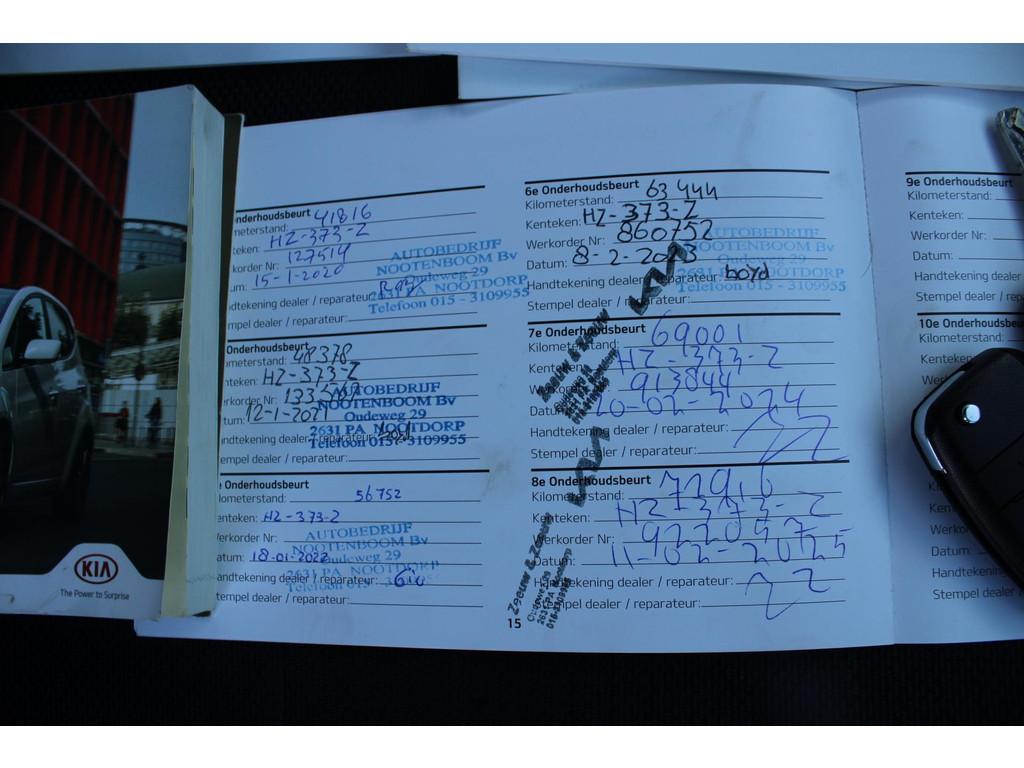 nderhoudsbeurt
meterstand: 41816
teken: HZ-373-Z
korder Nr: 127514
um: 15-1-2020
ndtekening dealer / reparateur:
mpel dealer / reparateur:
AUTOBEDRIJF
NOOTENBOOM Bv
Oudeweg 29
2631 PA NOOTDORP
Telefoon 015 - 3109955
Onderhoudsbeurt
meterstand: 48378
nteken: HZ-373-Z
rkorder Nr:
tum: 12-1-2021
ndtekening dealer / reparateur:
tempel dealer / reparateur:
AUTOBEDRIJF
NOOTENBOOM Bv
Oudeweg 29
2631 PA NOOTDORP
Telefoon 015 - 3109955
Onderhoudsbeurt
lometerstand: 56752
enteken: HZ-373-Z
erkorder Nr:
atum: 18-01-2022
andtekening dealer / reparateur:
Stempel dealer / reparateur:
AUTOBEDRIJF
NOOTENBOOM Bv
Oudeweg 29
2631 PA NOOTDORP
Telefoon 015
6e Onderhoudsbeurt
Kilometerstand: 63444
Kenteken: HZ-373-Z
Werkorder Nr: 860752
Datum: 8-2-2023
Handtekening dealer / reparateur: boyd
Stempel dealer / reparateur:
AUTOBEDRIJF
NOOTENBOOM Bv
Oudeweg 29
2631 PA NOOTDORP
Telefoon 015 - 3109955
7e Onderhoudsbeurt
Kilometerstand: 69001
Kenteken: HZ-373-Z
Werkorder Nr: 913844
Datum: 20-02-2024
Handtekening dealer / reparateur:
Stempel dealer / reparateur:
KIA
Zeeuw & Zeeuw
8e Onderhoudsbeurt
Kilometerstand: 72916
Kenteken: HZ-373-Z
Werkorder Nr: 9220497
Datum: 11-02-2025
Handtekening dealer / reparateur:
Stempel dealer / reparateur:
KIA
Zeeuw & Zeeuw
Oudeweg 29
2631 PA Nootdorp
015-3109955
15
9e Onderhoudsbeurt
Kilometerstand:
Kenteken:
Werkorder Nr:
Datum:
Handtekening dealer
Stempel dealer / rep
10e Onderhoudsbeu
Kilometerst
Kenteke
Werk
Ken
Werko
Datum:
Handtekening
Stempel dealer
KIA
The Power to Surprise